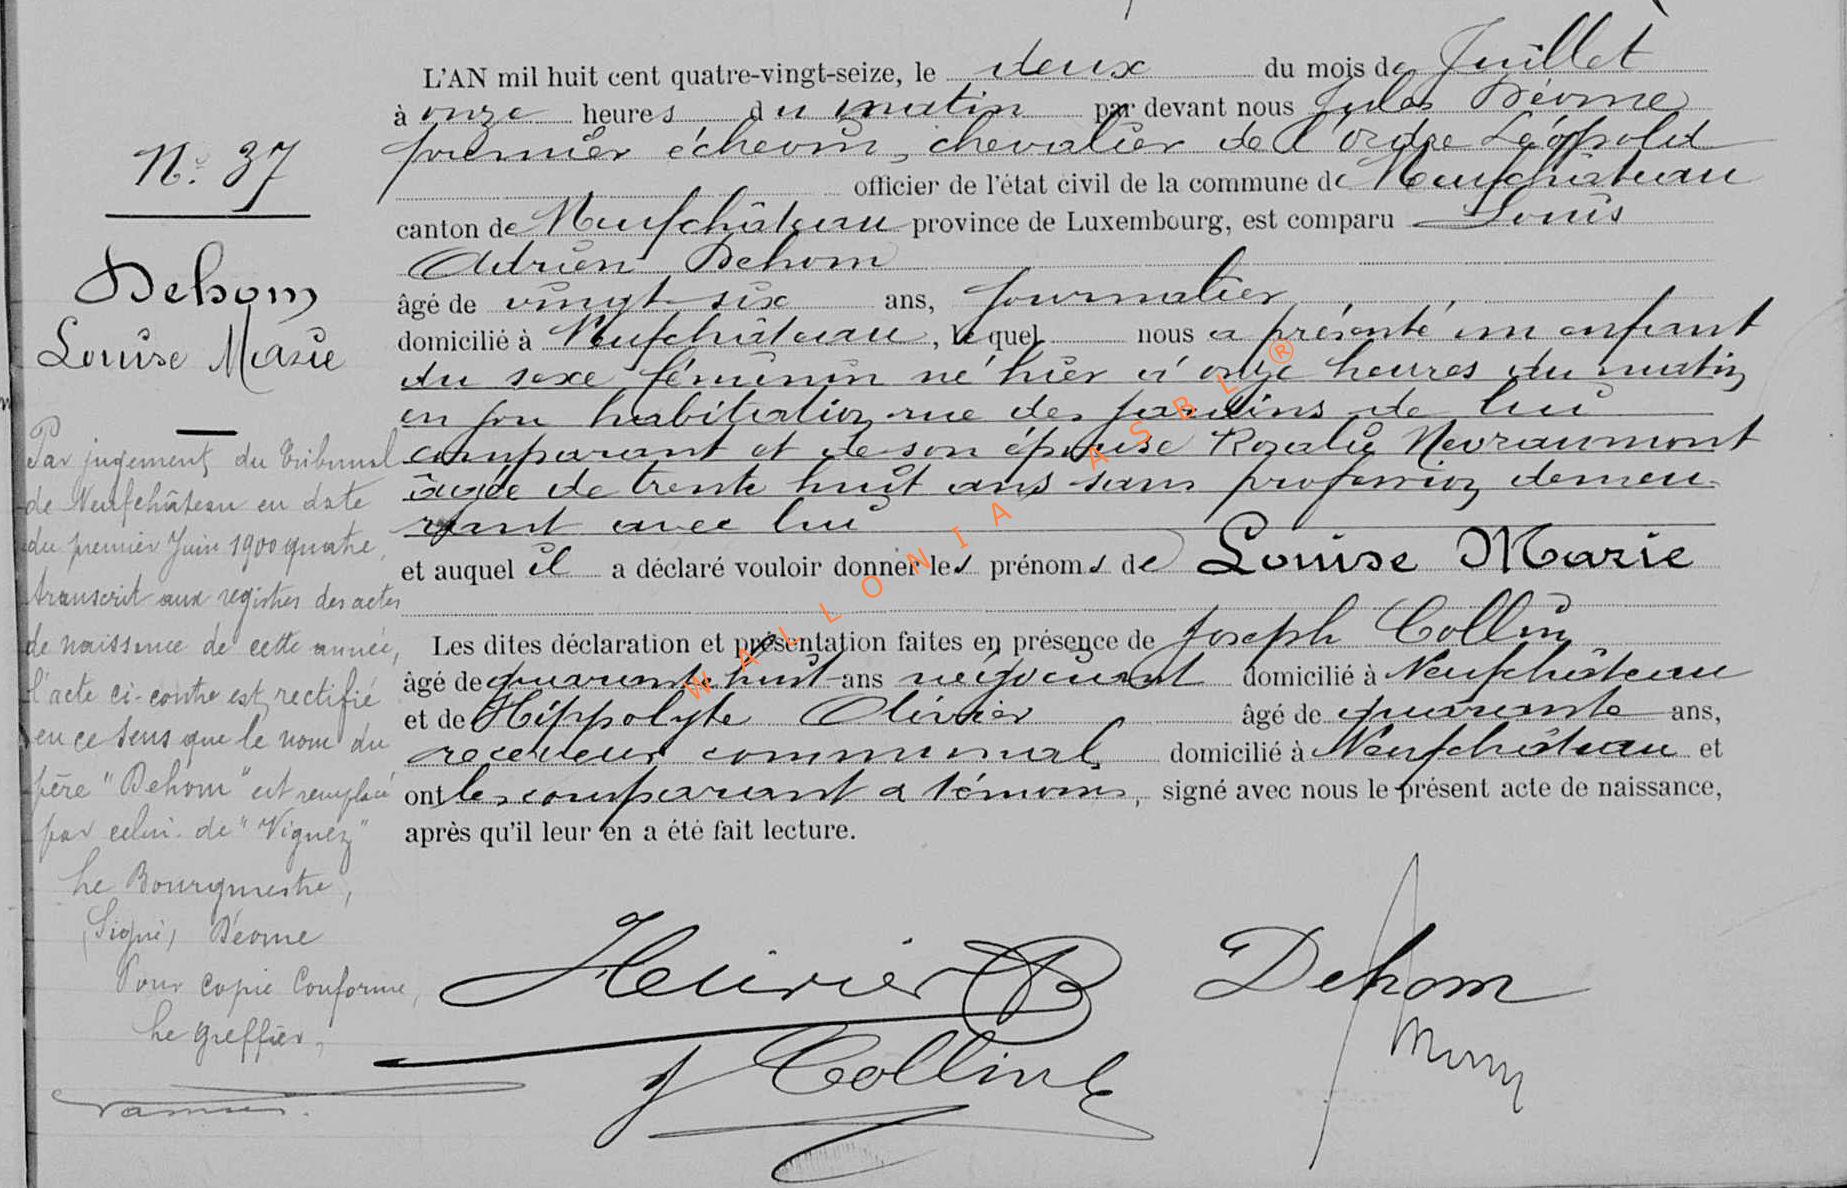 N.° 37
Dehom
Louise Marie
Par jugement du Tribunal
de Neufchâteau en date
du premier Juin 1900 quatre,
transcrit aux registres des actes
de naissance de cette année,
l'acte ci-contre est rectifié
en ce sens que le nom du
père "Dehom" est remplacé
par celui de "Vignez"
Le Bourgmestre,
(Signé) Déome
Pour copie conforme,
Le greffier,
L'AN mil huit cent quatre-vingt-seize, le deux du mois de Juillet
à onze heures du matin par devant nous Jules Déome
premier échevin, chevalier de l'ordre Léopold
officier de l'état civil de la commune de Neufchâteau
canton de Neufchâteau province de Luxembourg, est comparu Louis
Adrien Dehom
âgé de vingt-six ans, journalier
domicilié à Neufchâteau, lequel nous a présenté un enfant
du sexe féminin né hier à onze heures du matin
en son habitation rue des jardins de lui
comparant et de son épouse Rozalie Nevraumont
âgée de trente huit ans sans profession demeu-
rant avec lui
et auquel il a déclaré vouloir donner les prénoms de Louise Marie
Les dites déclaration et présentation faites en présence de Joseph Collin
âgé de quarante huit ans négociant domicilié à Neufchâteau
et de Hippolyte Olivier âgé de quarante ans,
receveur communal domicilié à Neufchâteau et
ont les comparant a témoins, signé avec nous le présent acte de naissance,
après qu'il leur en a été fait lecture.
Dehom
J Collin
WALLONIA ASBL ®